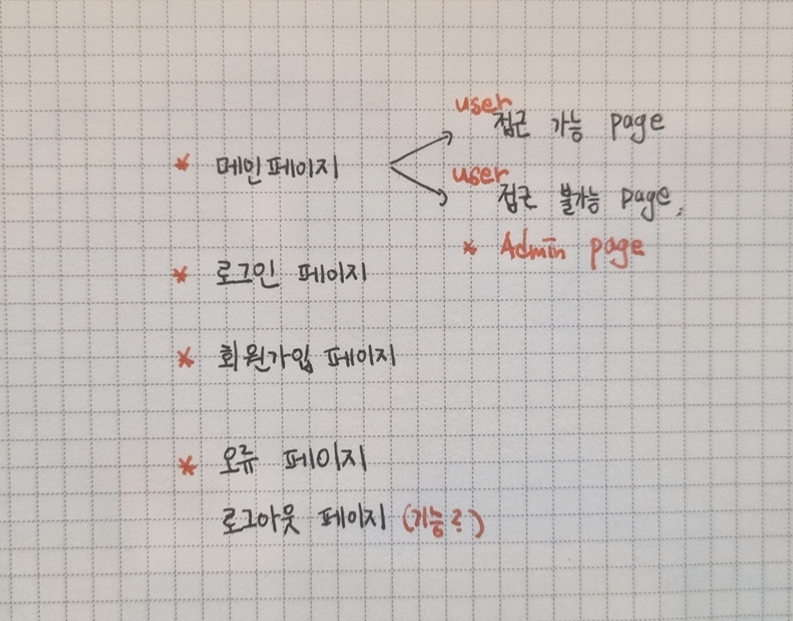 user
접근 가능 page
* 메인페이지
user
접근 불가능 page.
* Admin page
* 로그인 페이지
* 회원가입 페이지
* 오류 페이지
로그아웃 페이지 (기능?)